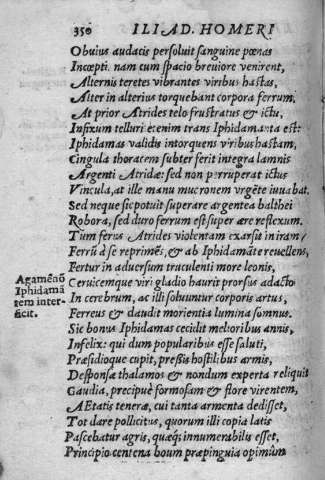 350 ILIAD. HOMERI
Obuius audacis persoluit sanguine pœnas
Incœpti. nam cum spacio breuiore venirent,
Alternis teretes vibrantes viribus hastas,
Alter in alterius torquebant corpora ferrum,
At prior Atrides telo frustratus & ictu,
Infixum telluri etenim trans Iphidamanta est:
Iphidamas validis intorquens viribus hastam,
Cingula thoracem subter ferit integra lamnis
Argenti Atridæ: sed non perruperat ictus
Vincula, at ille manu mucronem vrgēte iuuabat.
Sed neque sic potuit superare argentea balthei
Robora, sed duro ferrum est super ære reflexum.
Tum ferus Atrides violentam exarsit in iram,
Ferrū ad se reprimēs, & ab Iphidamāte reuellens,
Fertur in aduersum truculenti more leonis,
Ceruicemque viri gladio haurit prorsus adacto
In cerebrum, ac illi soluuntur corporis artus,
Ferreus & claudit morientia lumina somnus.
Sic bonus Iphidamas cecidit melioribus annis,
Infelix: qui dum popularibus esse saluti,
Præsidioque cupit, preßis hostilibus armis,
Desponsæ thalamos & nondum experta reliquit
Gaudia, precipuè formosam & flore virentem,
AEtatis teneræ, cui tanta armenta dedisset,
Tot dare pollicitus, quorum illi copia latis
Pascebatur agris, quæq; innumerabilis esset,
Principio centena boum præpinguia opimùm
Agamēnō
Iphidamā
tem inter-
ficit.